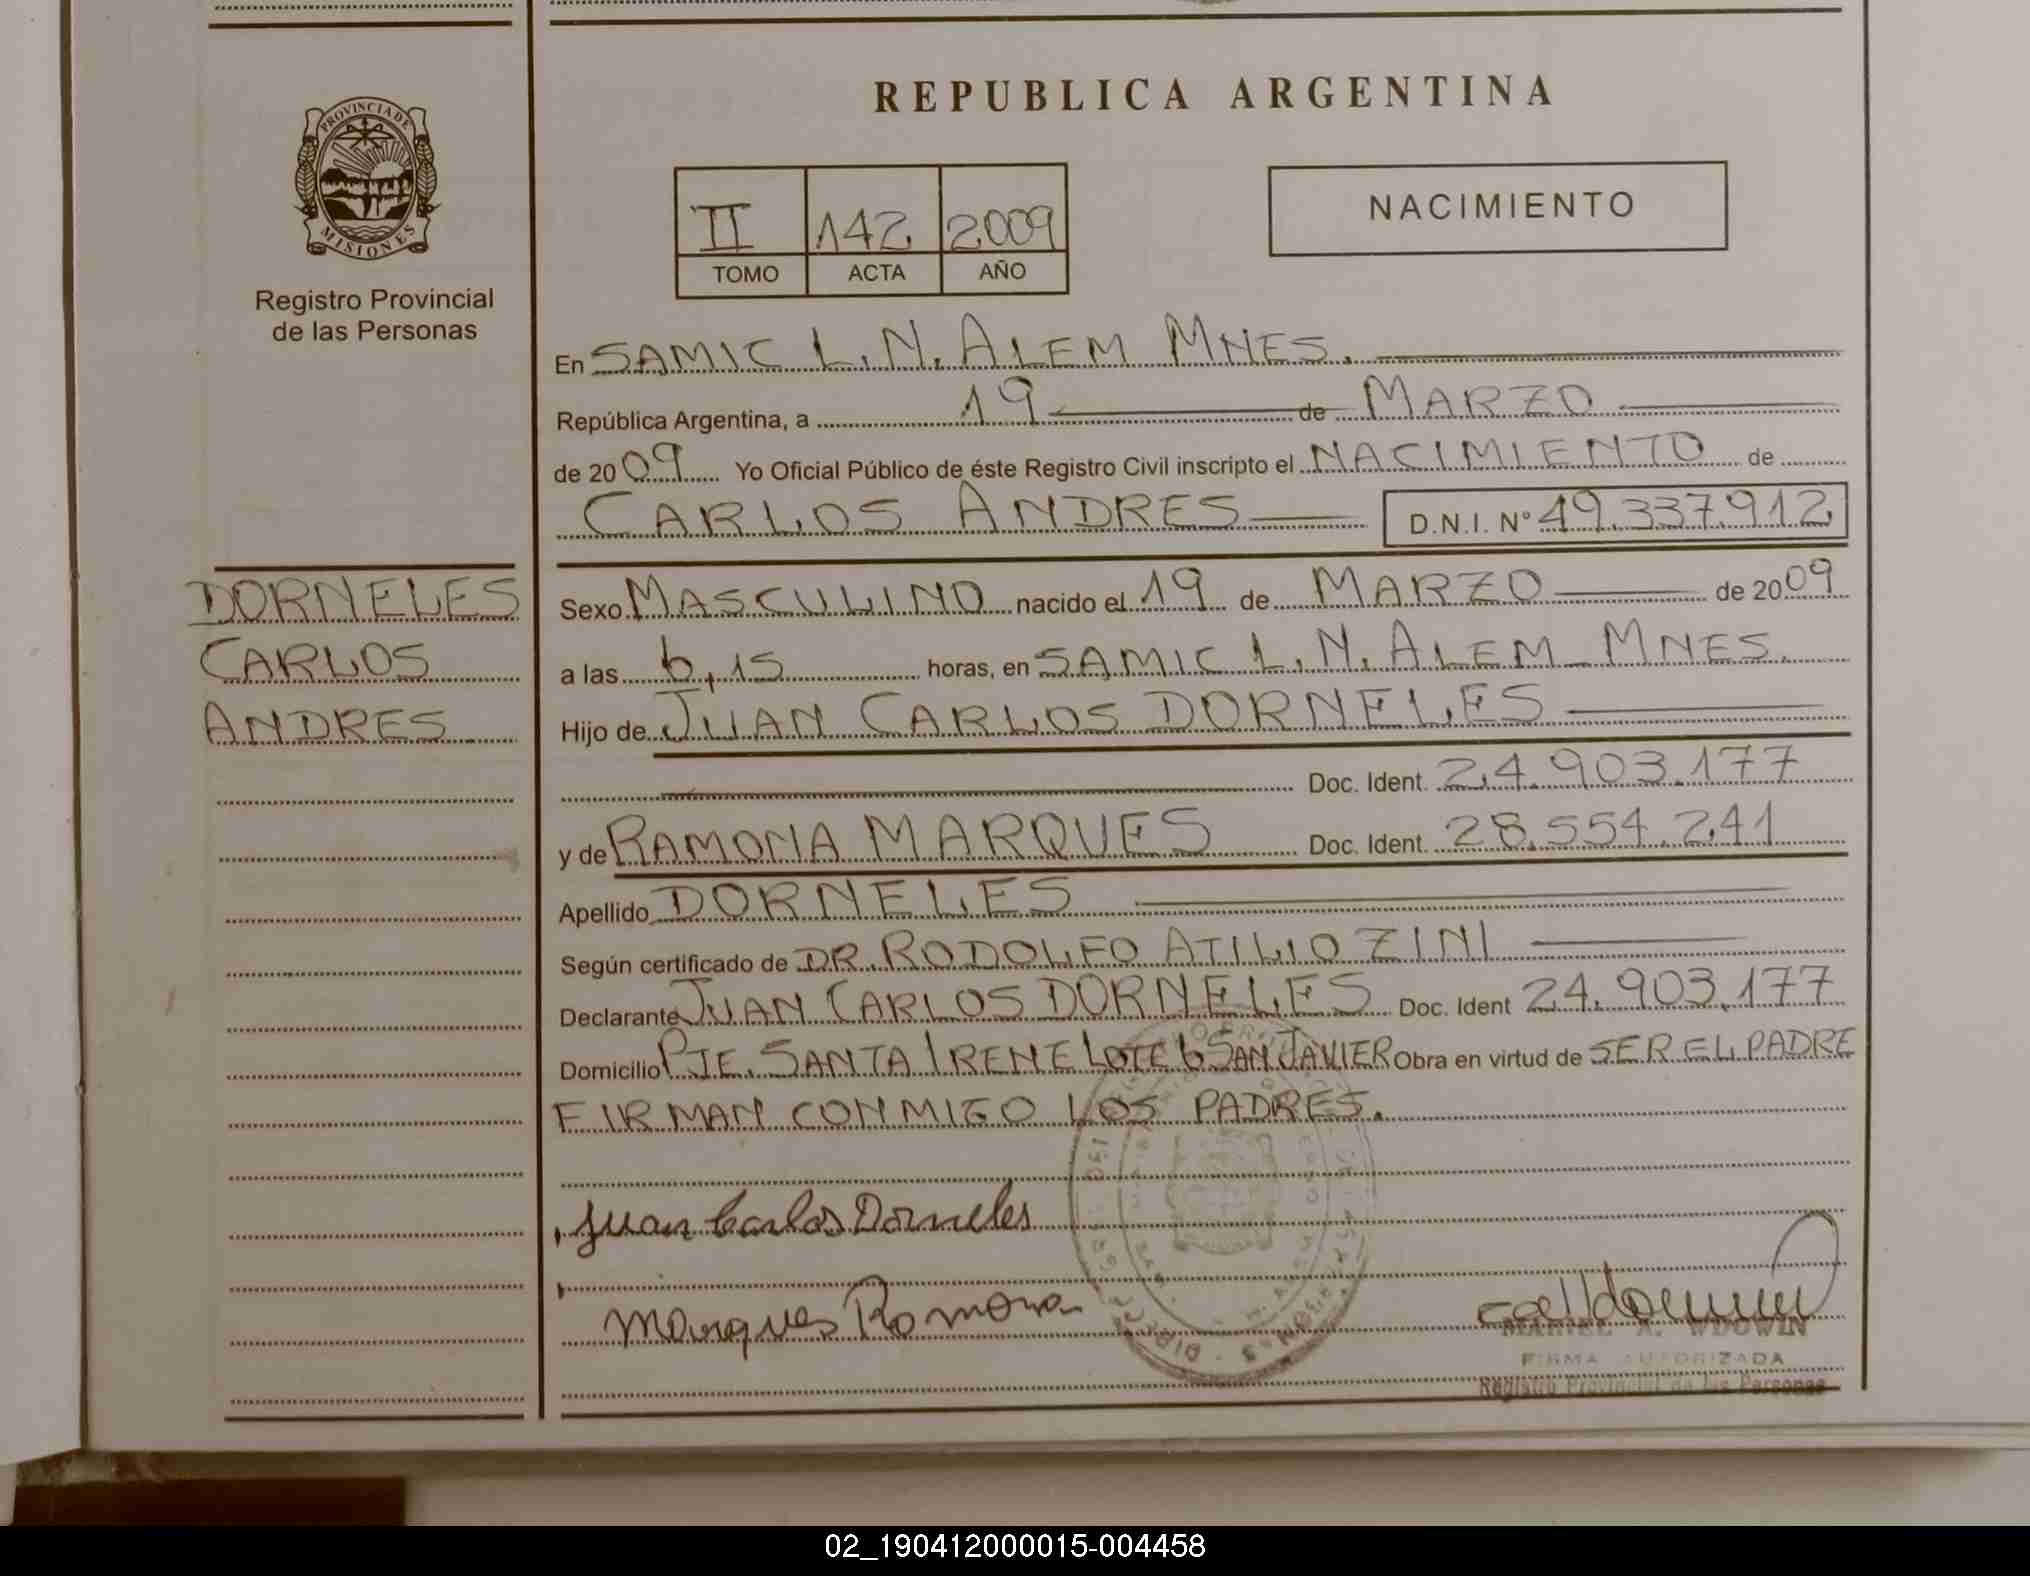 REPUBLICA ARGENTINA
PROVINCIA DE
MISIONES
Registro Provincial
de las Personas
II 142 2009
TOMO ACTA AÑO
NACIMIENTO
En SAMIC L.N. ALEM MNES.
República Argentina, a 19 de MARZO
de 2009 Yo Oficial Público de éste Registro Civil inscripto el NACIMIENTO de
CARLOS ANDRES D.N.I. N° 49.337.912
DORNELES
CARLOS
ANDRES
Sexo MASCULINO nacido el 19 de MARZO de 2009
a las 6,15 horas, en SAMIC L.N. ALEM - MNES.
Hijo de JUAN CARLOS DORNELES
Doc. Ident. 24.903.177
y de RAMONA MARQUES Doc. Ident. 28.554.241
Apellido DORNELES
Según certificado de DR. RODOLFO ATILIO ZINI
Declarante JUAN CARLOS DORNELES Doc. Ident 24.903.177
Domicilio PJE. SANTA IRENE LOTE 6 SAN JAVIER Obra en virtud de SER EL PADRE
FIRMAN CONMIGO LOS PADRES.
Juan Carlos Dorneles
Marques Romona
MARIEL A. WDOWIN
FIRMA AUTORIZADA
Registro Provincial de las Personas
02_190412000015-004458